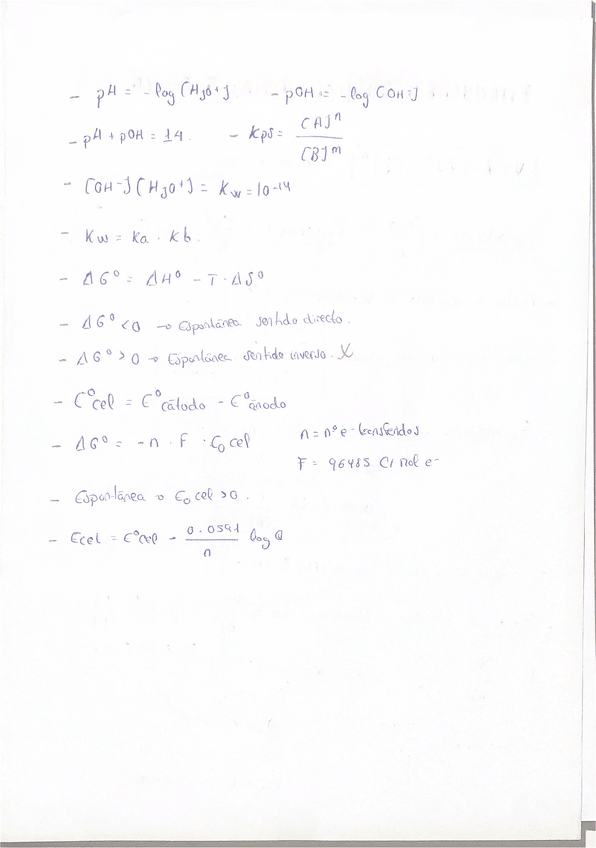 - pH = -log [H3O+]   - pOH = -log [OH-]
- pH + pOH = 14.   - Kps = [A]^n / [B]^m
- [OH-][H3O+] = Kw = 10^-14
- Kw = ka · kb.
- ΔG° = ΔH° - T · ΔS°
- ΔG° < 0 → Espontánea sentido directo.
- ΔG° > 0 → Espontánea sentido inverso. X
- E°cel = E°cátodo - E°ánodo
- ΔG° = -n · F · E0 cel   n = nº e- transferidos
F = 96485 C/mol e-
- Espontánea → E0 cel > 0.
- Ecel = E°cel - 0.0591/n log Q